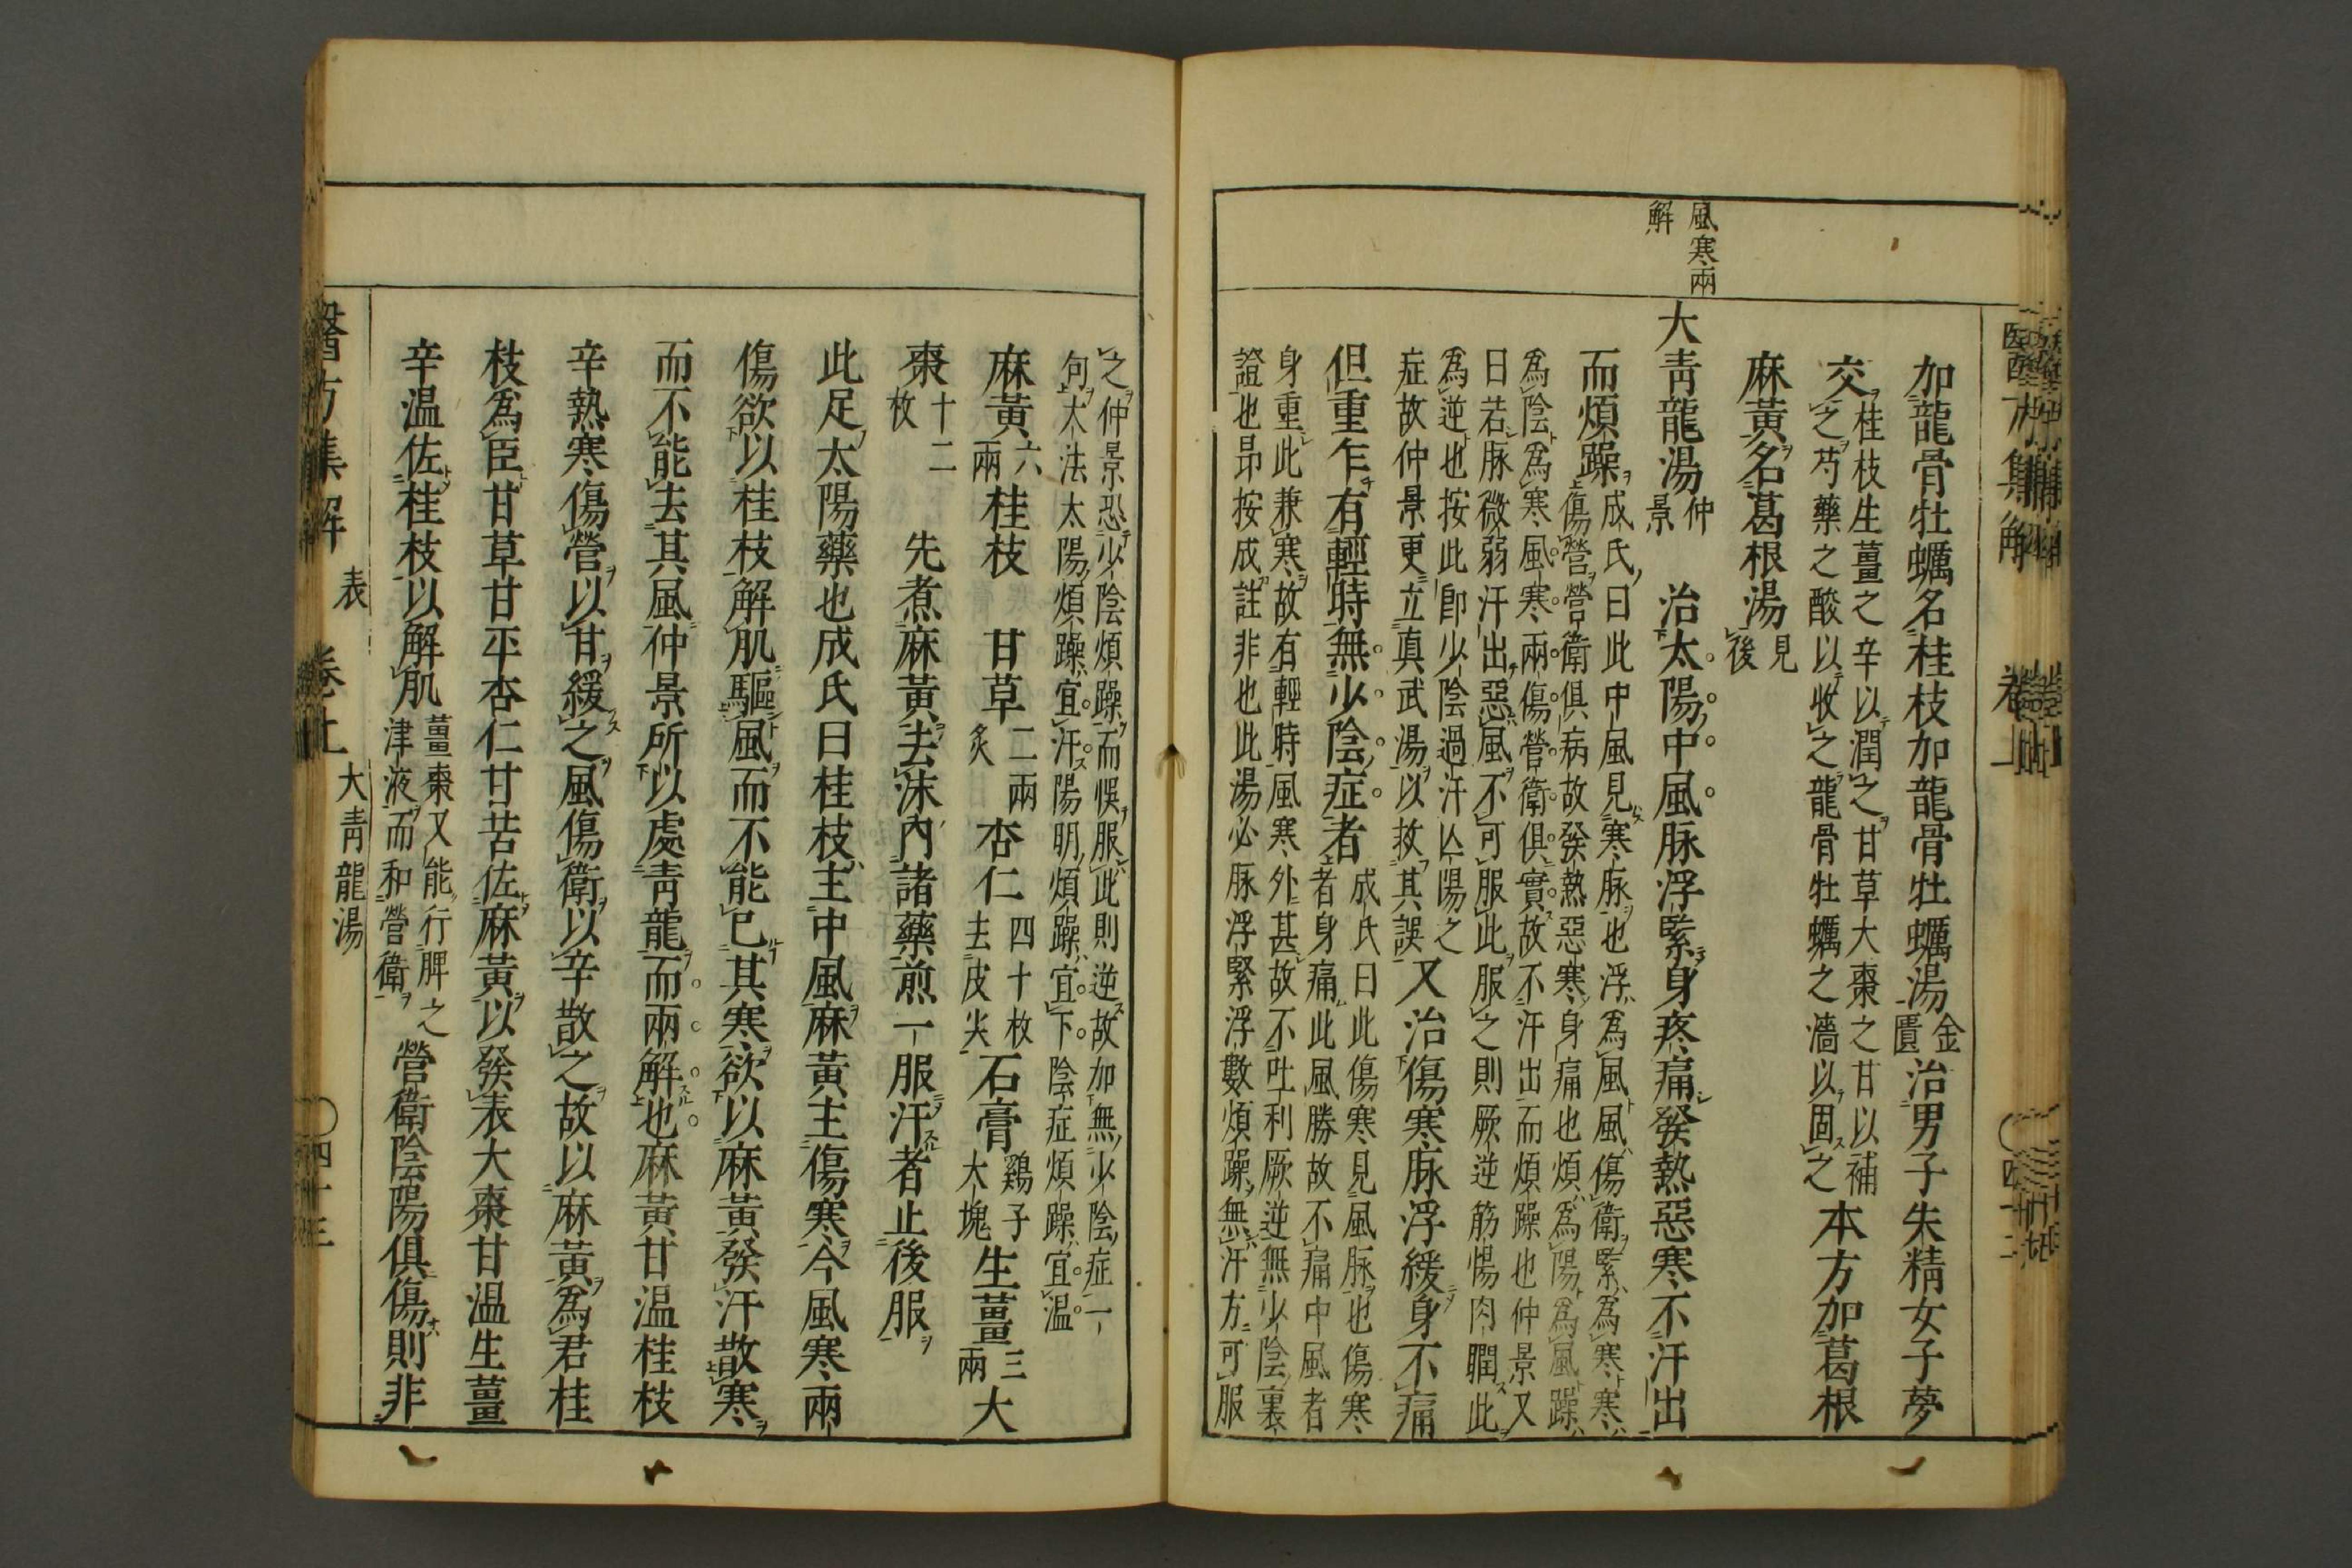 醫方集解 卷上
加龍骨牡蠣名桂枝加龍骨牡蠣湯金匱治男子失精女子夢
交桂枝生薑之辛以潤之甘草大棗之甘以補
之芍藥之酸以收之龍骨牡蠣之濇以固之本方加葛根
麻黃名葛根湯見後
風寒兩
解
大青龍湯仲景 治太陽中風脉浮緊身疼痛發熱惡寒不汗出
而煩躁成氏曰此中風見寒脉也浮爲風風傷衛緊爲寒寒
傷營營衛俱病故發熱惡寒身痛也煩爲陽爲風躁
爲陰爲寒風寒兩傷營衛俱實故不汗出而煩躁也仲景又
曰若脉微弱汗出惡風不可服此服之則厥逆筋惕肉瞤此
爲逆也按此即少陰過汗亾陽之
症故仲景更立真武湯以救其誤又治傷寒脉浮緩身不痛
但重乍有輕時無少陰症者成氏曰此傷寒見風脉也傷寒
者身痛此風勝故不痛中風者
身重此兼寒故有輕時風寒外甚故不吐利厥逆無少陰裏
證也昂按成註非也此湯必脉浮緊浮數煩躁無汗方可服
之仲景恐少陰煩躁而悞服此則逆故加無少陰症一
句大法太陽煩躁宜汗陽明煩躁宜下陰症煩躁宜温
麻黃六兩桂枝 甘草二兩炙杏仁四十枚去皮尖石膏鷄子大塊生薑三兩大
棗十二枚 先煮麻黃去沫內諸藥煎一服汗者止後服
此足太陽藥也成氏曰桂枝主中風麻黃主傷寒今風寒兩
傷欲以桂枝解肌驅風而不能已其寒欲以麻黃發汗散寒
而不能去其風仲景所以處青龍而兩解也麻黃甘温桂枝
辛熱寒傷營以甘緩之風傷衛以辛散之故以麻黃爲君桂
枝爲臣甘草甘平杏仁甘苦佐麻黃以發表大棗甘温生薑
辛温佐桂枝以解肌薑棗又能行脾之
津液而和營衛營衛陰陽俱傷則非
醫方集解 表 卷上 大青龍湯 〇四十三